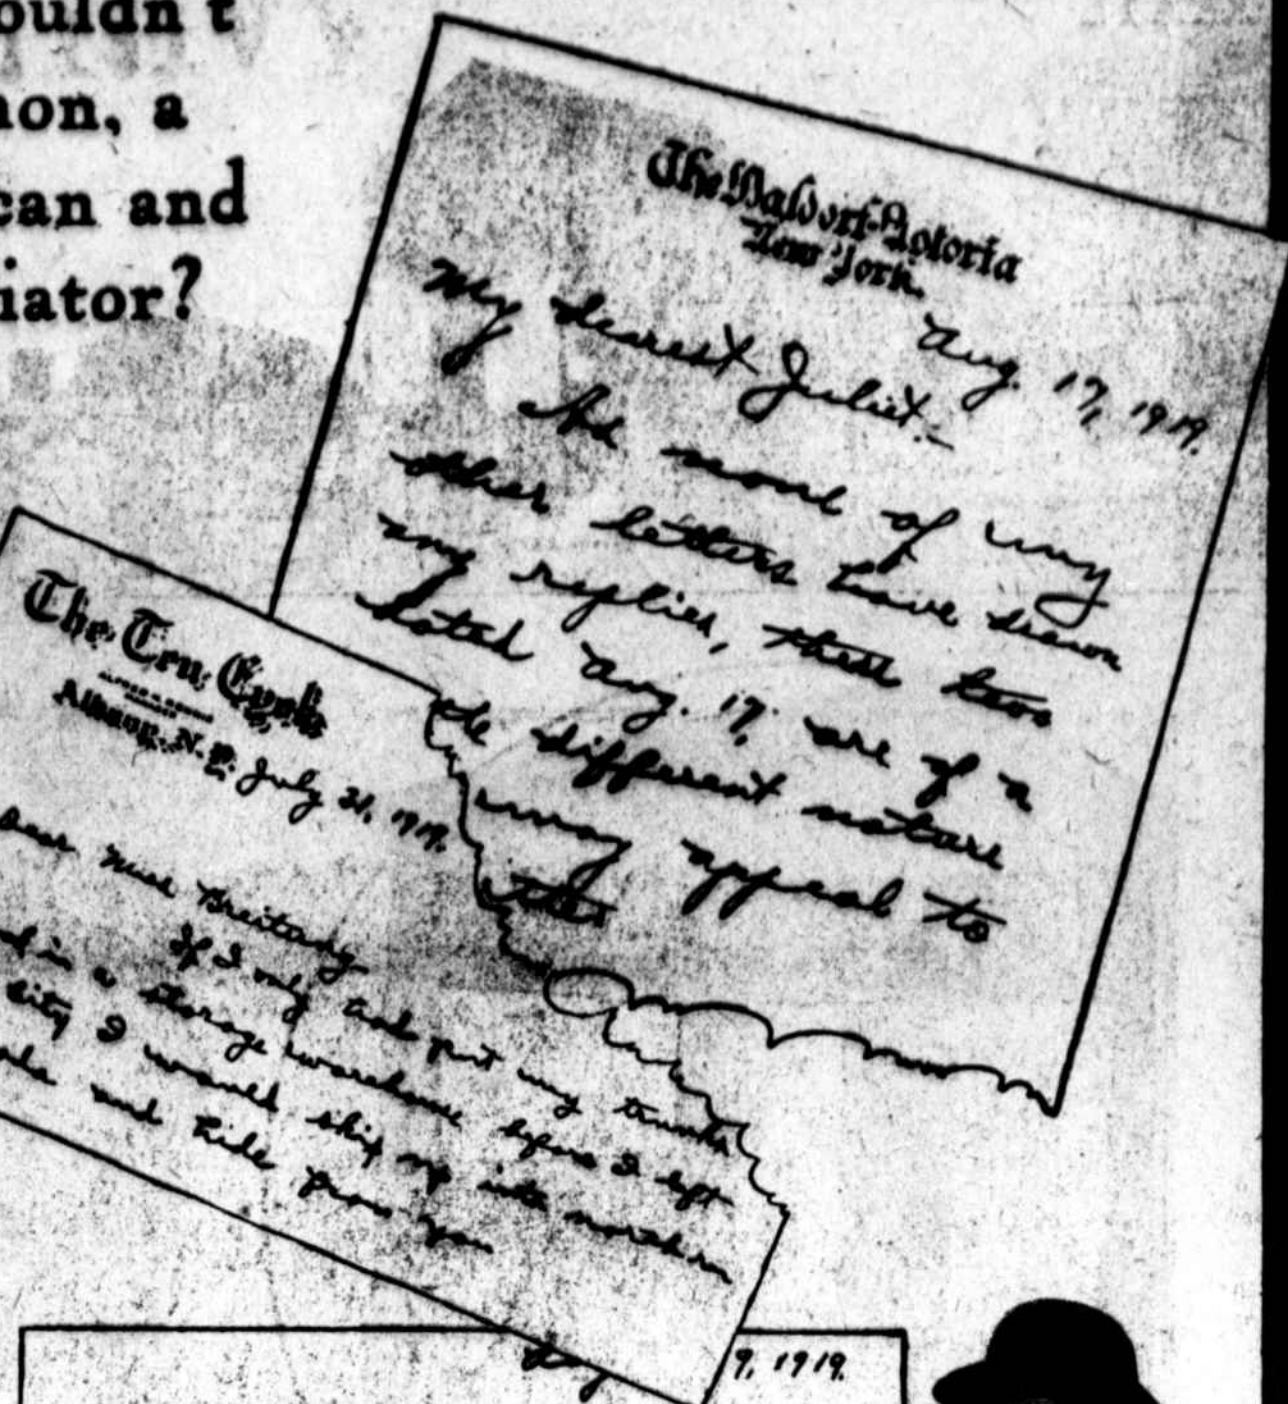 ouldn't
non, a
can and
iator?
The Waldorf-Astoria
New York.
Aug. 17, 1919.
My dearest Juliet:-
As none of my
other letters have drawn
any replies, these two
dated Aug. 17, are of a
different nature
may appeal to
The Ten Eyck
Albany, N.Y. July 31, 1919.
Dear Miss Breitung
If I only had put my trunks
in a storage warehouse before I left
city I would skip up into northern
and hide from you
9, 1919.